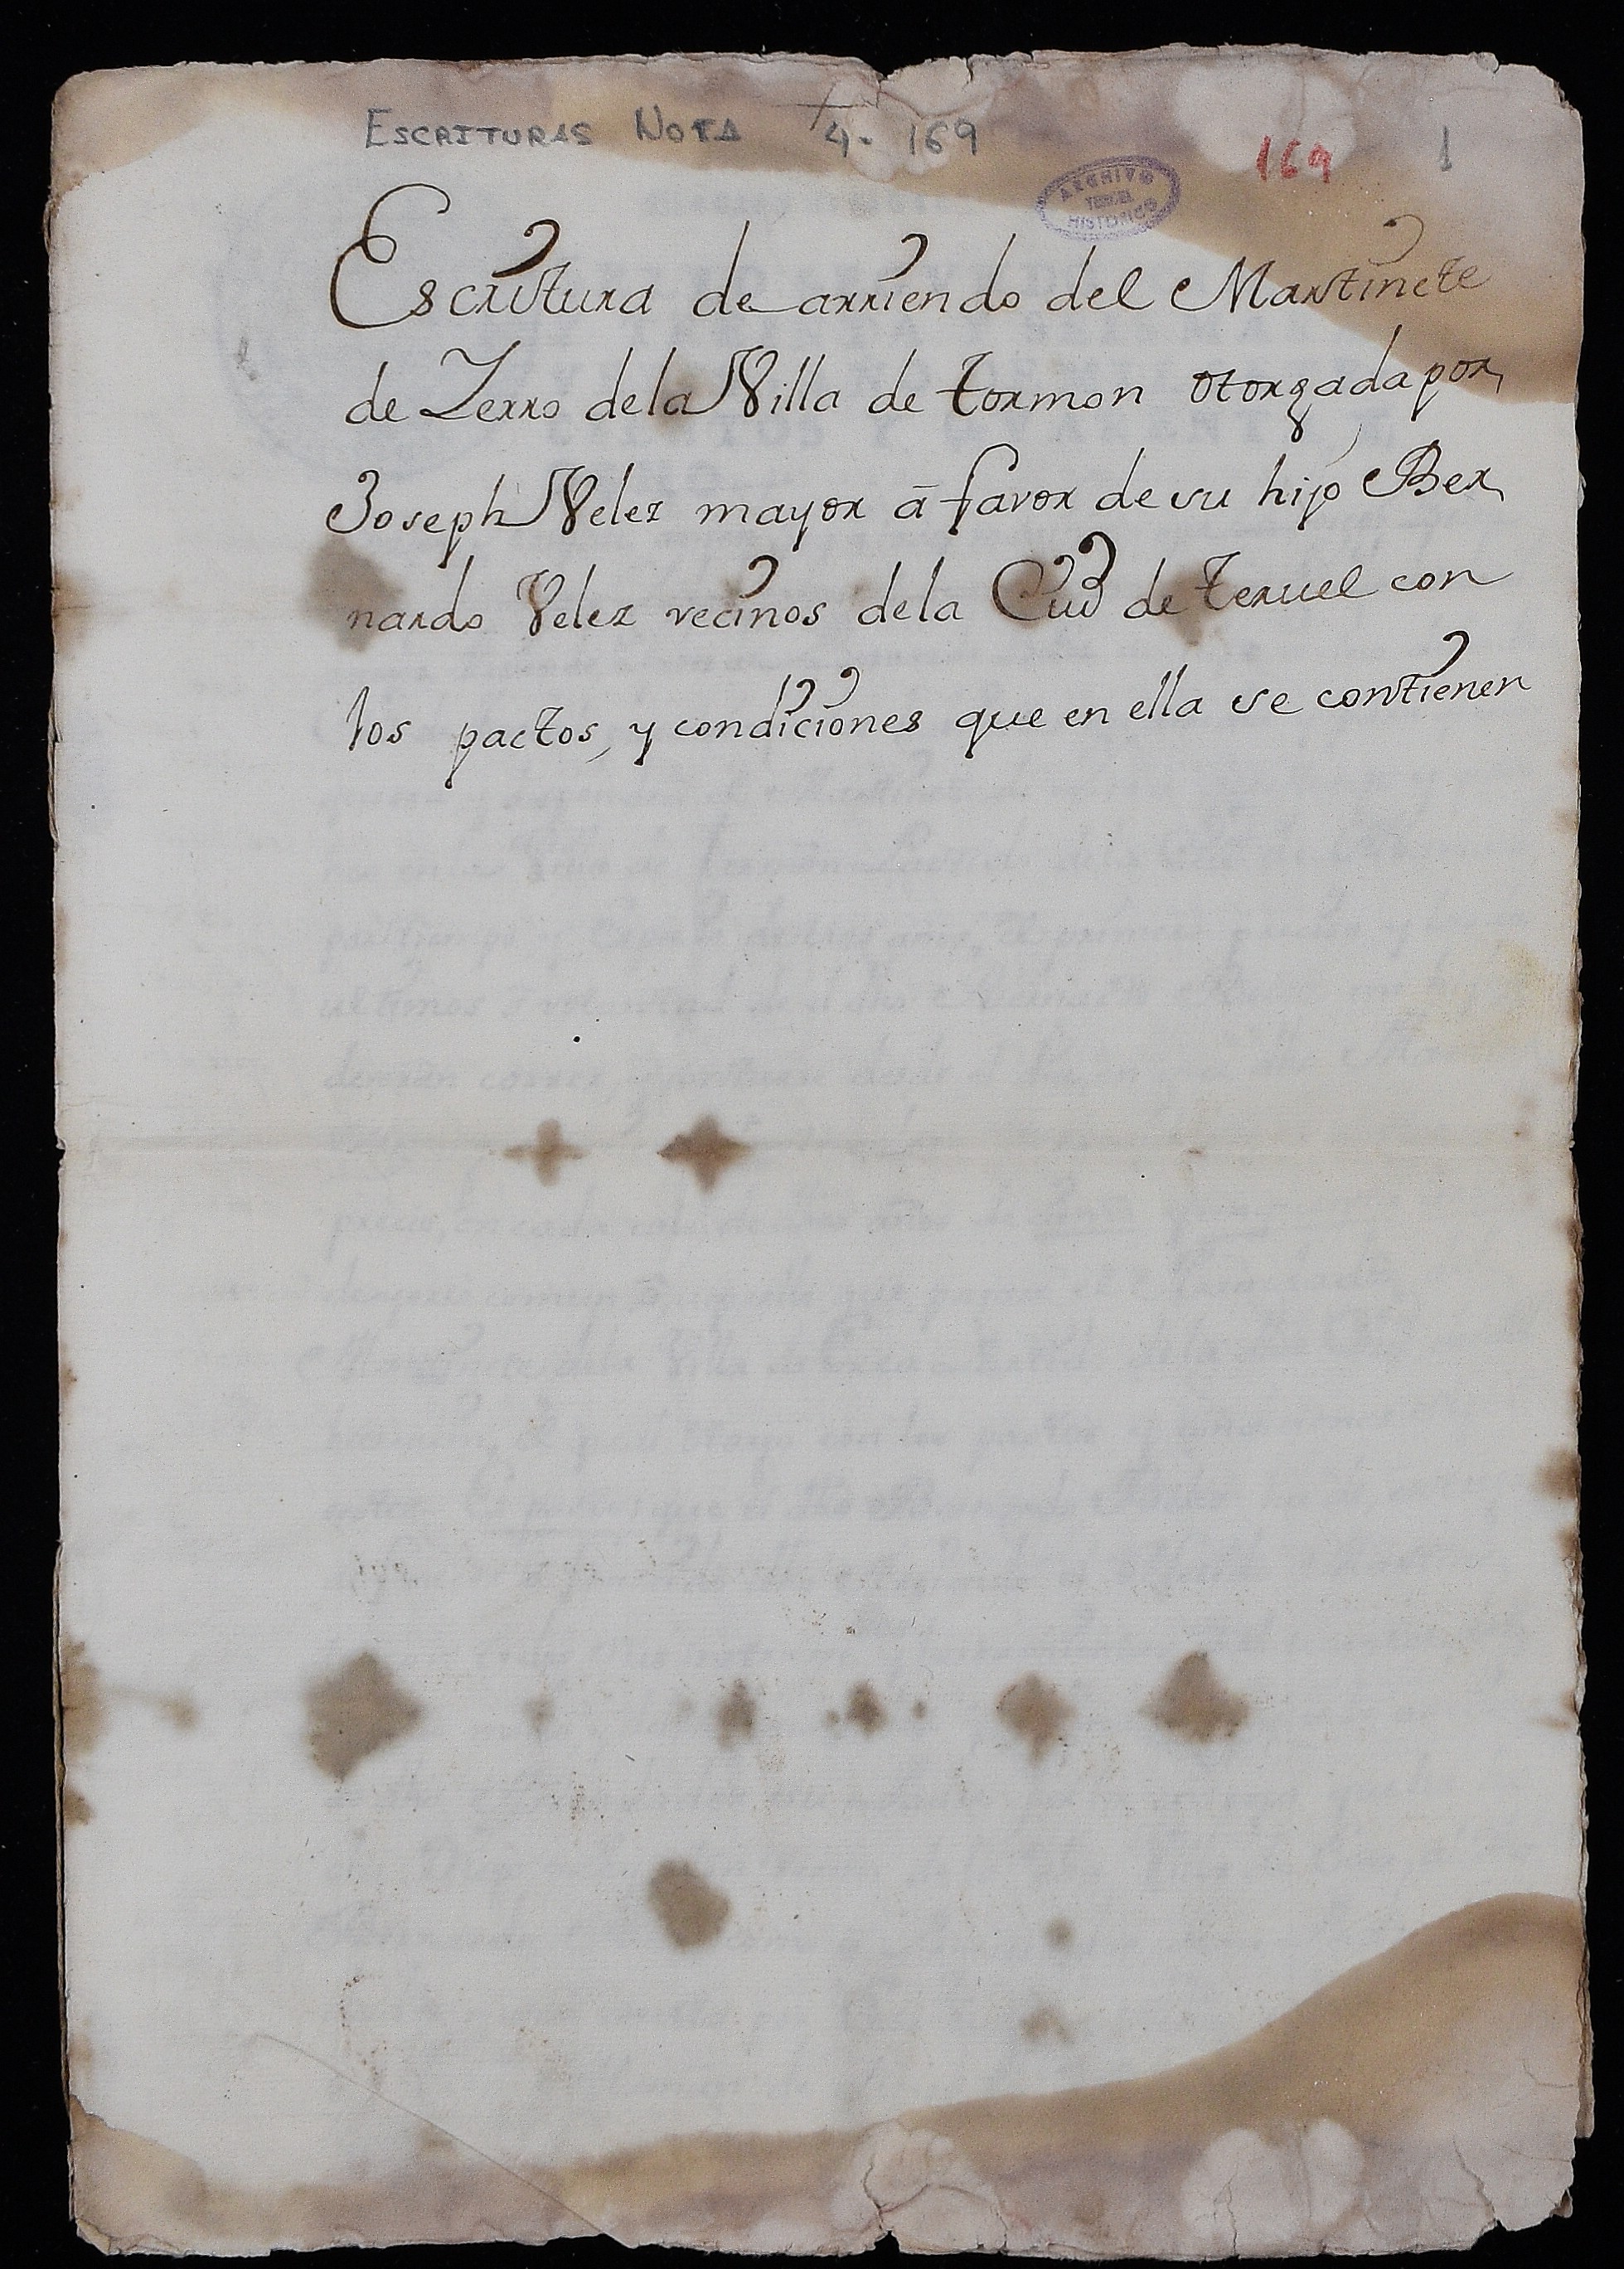 ESCRITURAS NOTA 4-169
169 1
ARCHIVO
HISTORICO
Escritura de arriendo del Martinete
de Zerro dela Villa de tormon otorgada por
Joseph Velez mayor â favor de su hijo Ber
nardo Velez vecinos dela Ciud de teruel con
los pactos, y condiciones que en ella se contienen